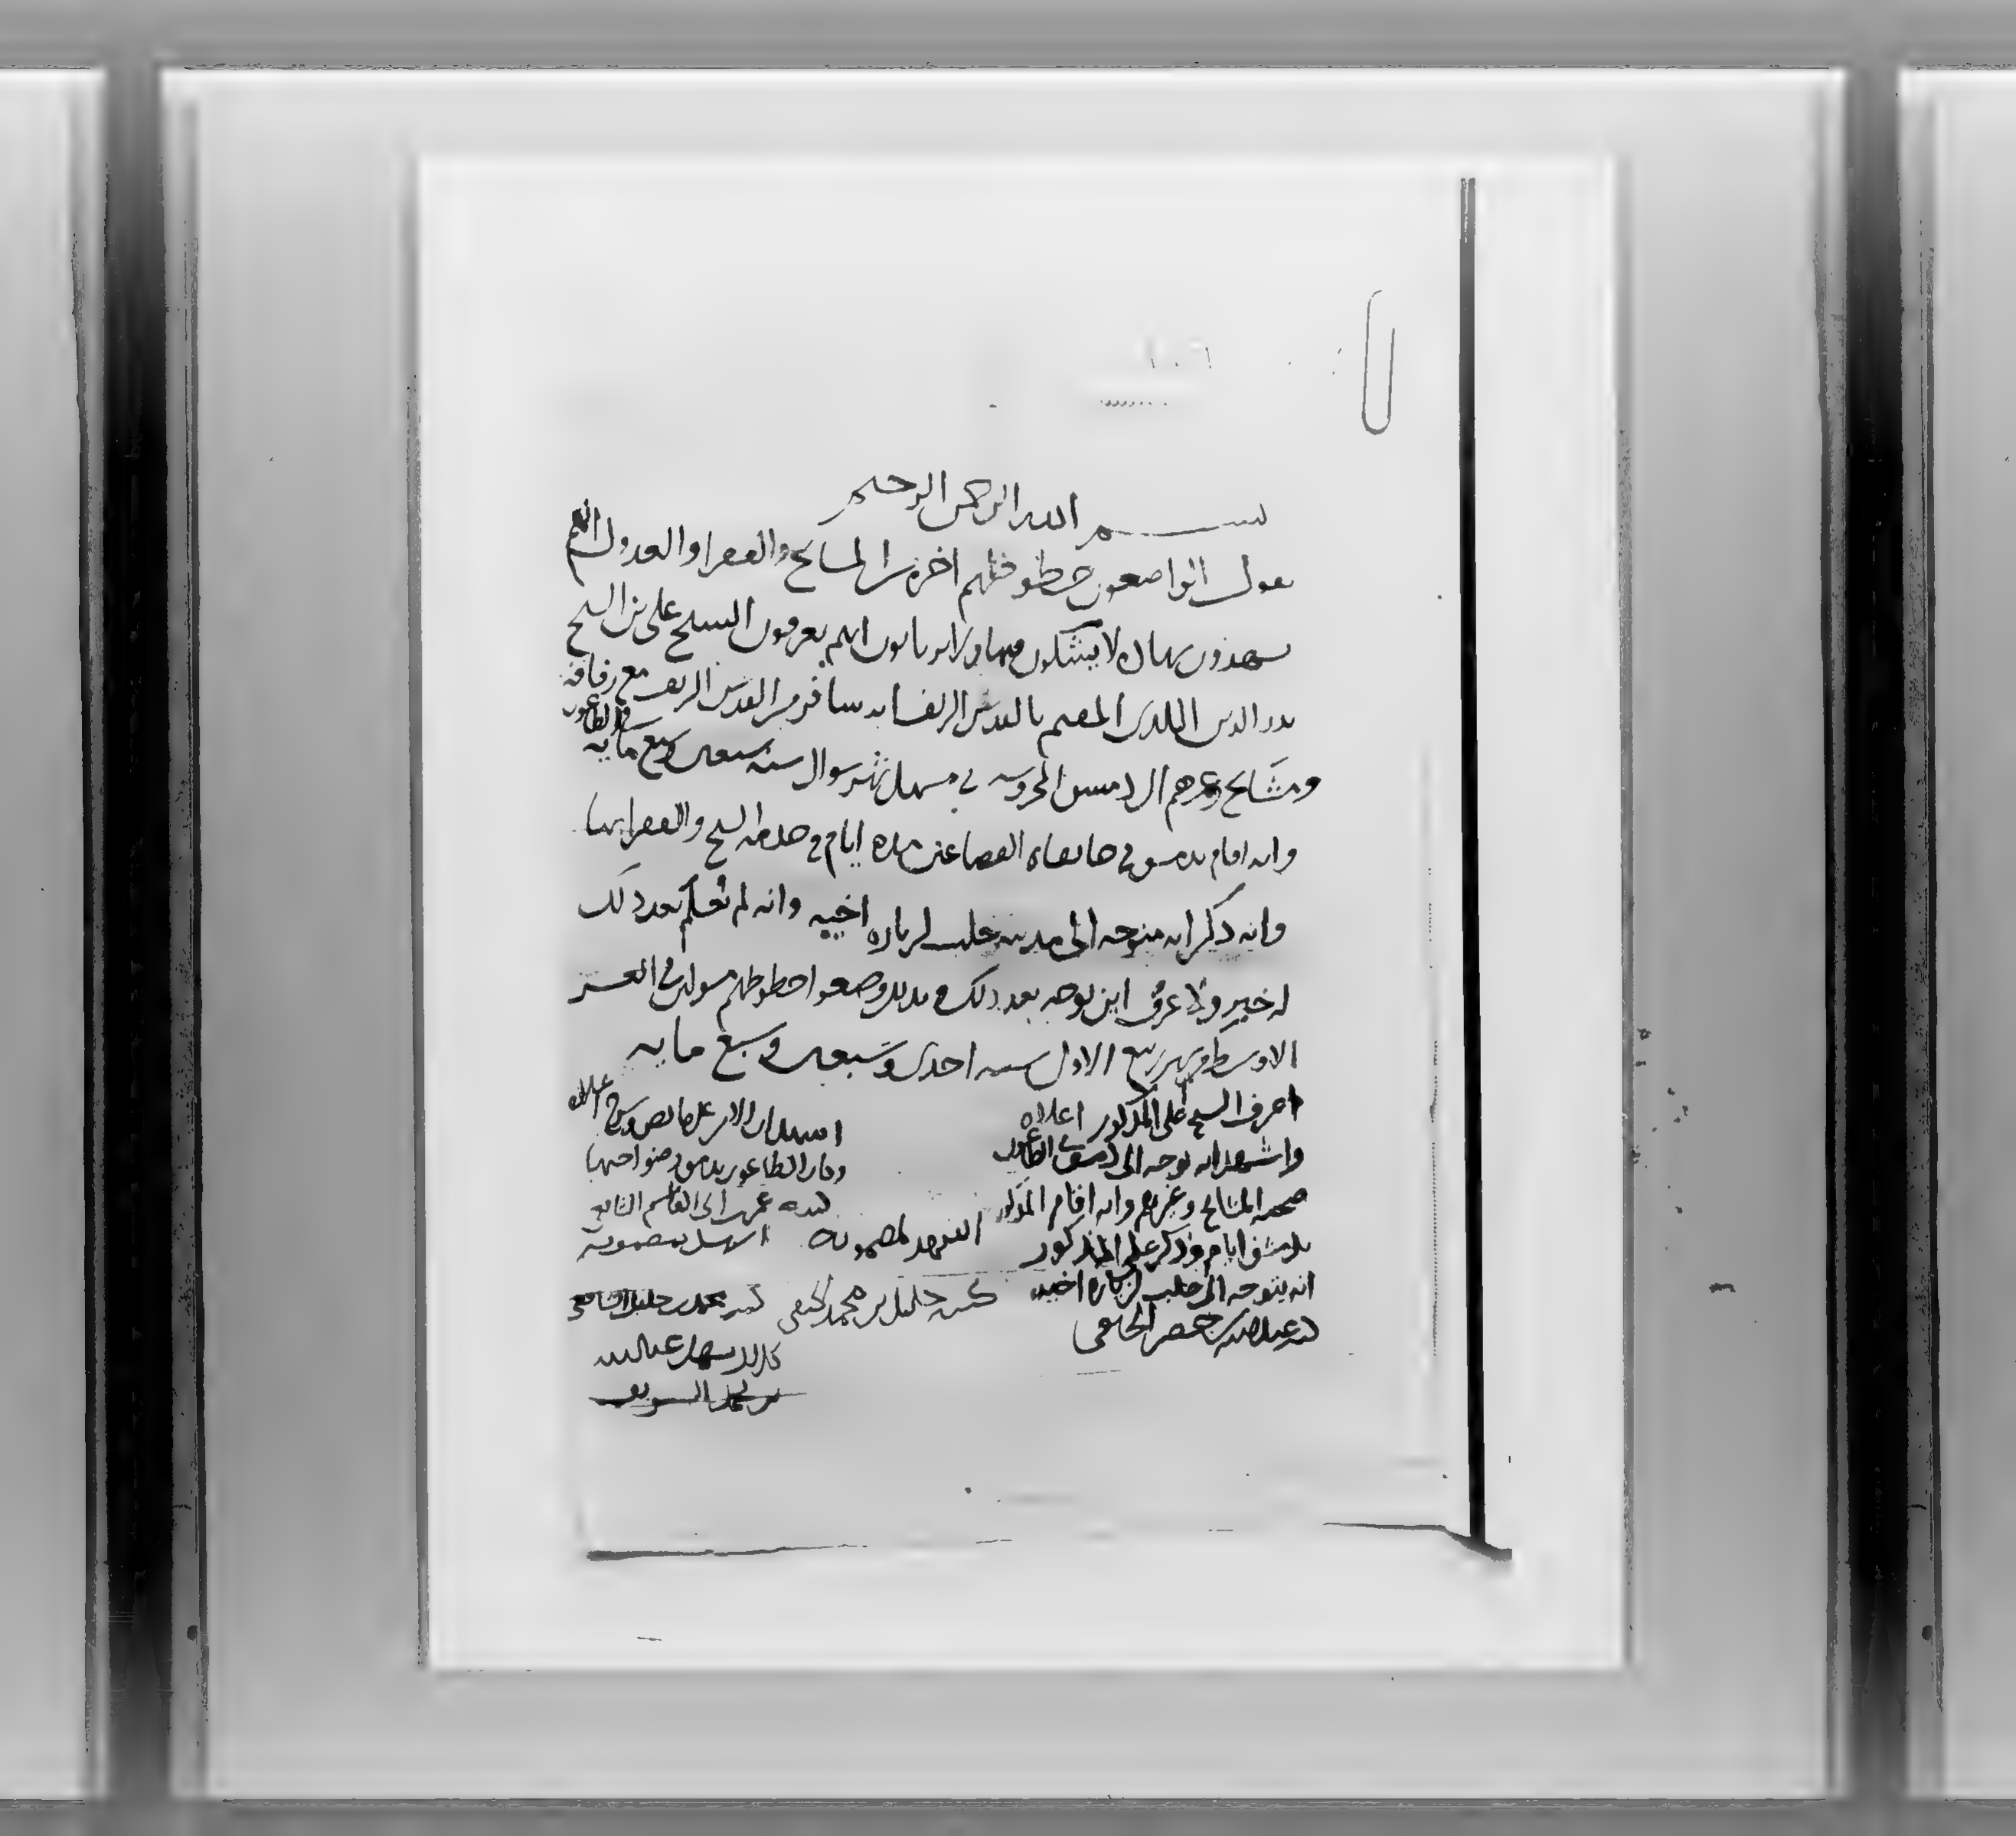 بسم الله الرحمن الرحيم
يقول الواضعون خطوطهم اخره من المشايخ والفقرا والعدول انهم
يشهدون شهادة لا يشكون فيها ولا يرتابون انهم يعرفون الشيخ علي بن الشيخ
بدر الدين المقيم بالقدس الشريف انه سافر من القدس الشريف مع رفاقه
ومشايخ وغيرهم الى دمشق المحروسة في مستهل شهر شوال سنة سبعين وسبع ماية
في الطاعون
وانه اقام بدمشق في خانقاه مدة ايام في خدمة الشيخ والفقرا بها
وانه ذكر انه متوجه الى مدينة حلب لزيارة اخيه وانه لم نعلم بعد ذلك
له خبر ولا عرف اين توجه بعد ذلك وبذلك وضعوا خطوطهم في العشر
الاوسط من شهر ربيع الاول سنة احدى وسبعين وسبع ماية
اعرف الشيخ علي المذكور اعلاه
واشهد انه توجه الى دمشق في الطاعون
صحبة المشايخ وغيرهم وانه اقام المذكور
بدمشق ايام وذكر علي المذكور
انه يتوجه الى حلب لزيارة اخيه
كتبه عبد الله بن
اشهد بمضمونه
كتبه خليل بن محمد الحنفي
اشهد ان الامر على ما نص وشرح اعلاه
وكان الطاعون بدمشق وضواحيها
كتبه عمر بن ابي القاسم
اشهد بمضمونه
كتبه محمد بن خليل الشافعي
كذلك يشهد عبد الله
بن محمد